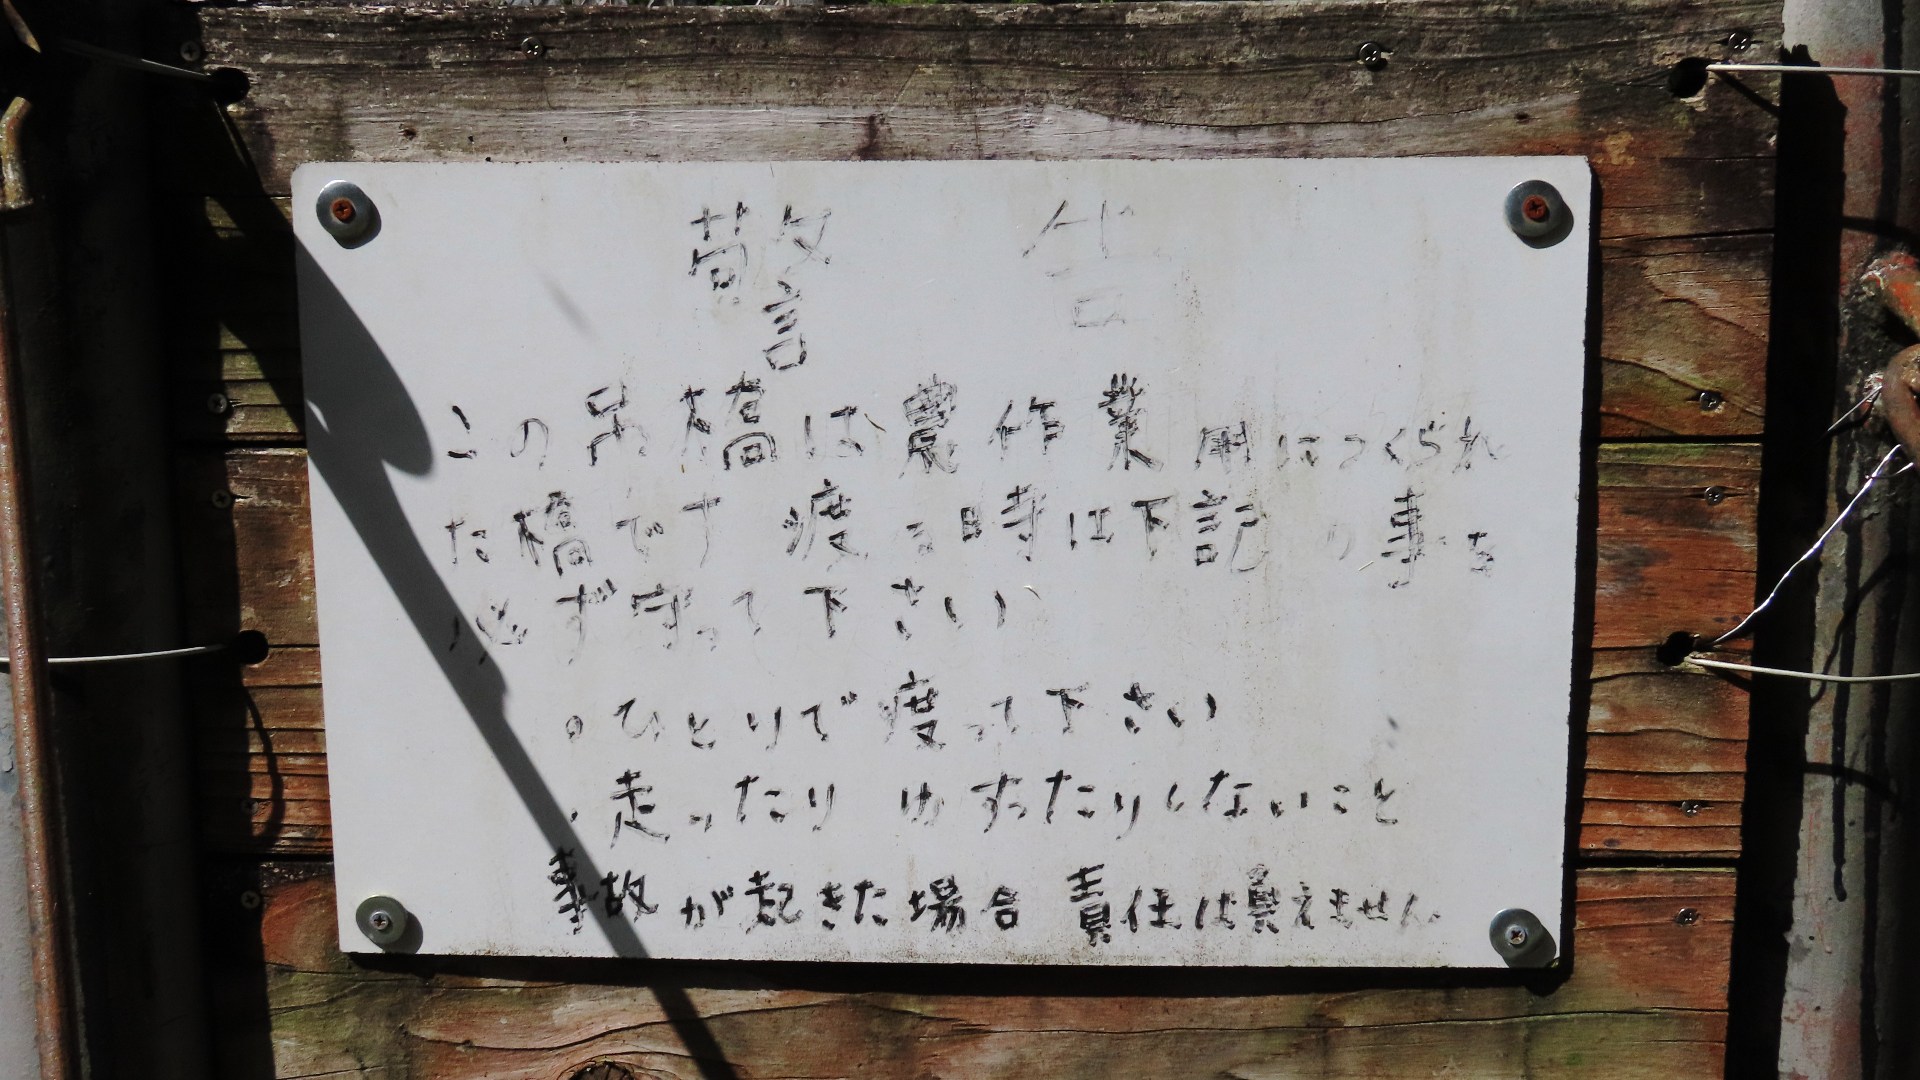 警告
この吊橋は農作業用につくられ
た橋です 渡る時は下記の事を
必ず守って下さい
。ひとりで渡って下さい
・走ったり ゆすったりしないこと
事故が起きた場合 責任は負えません